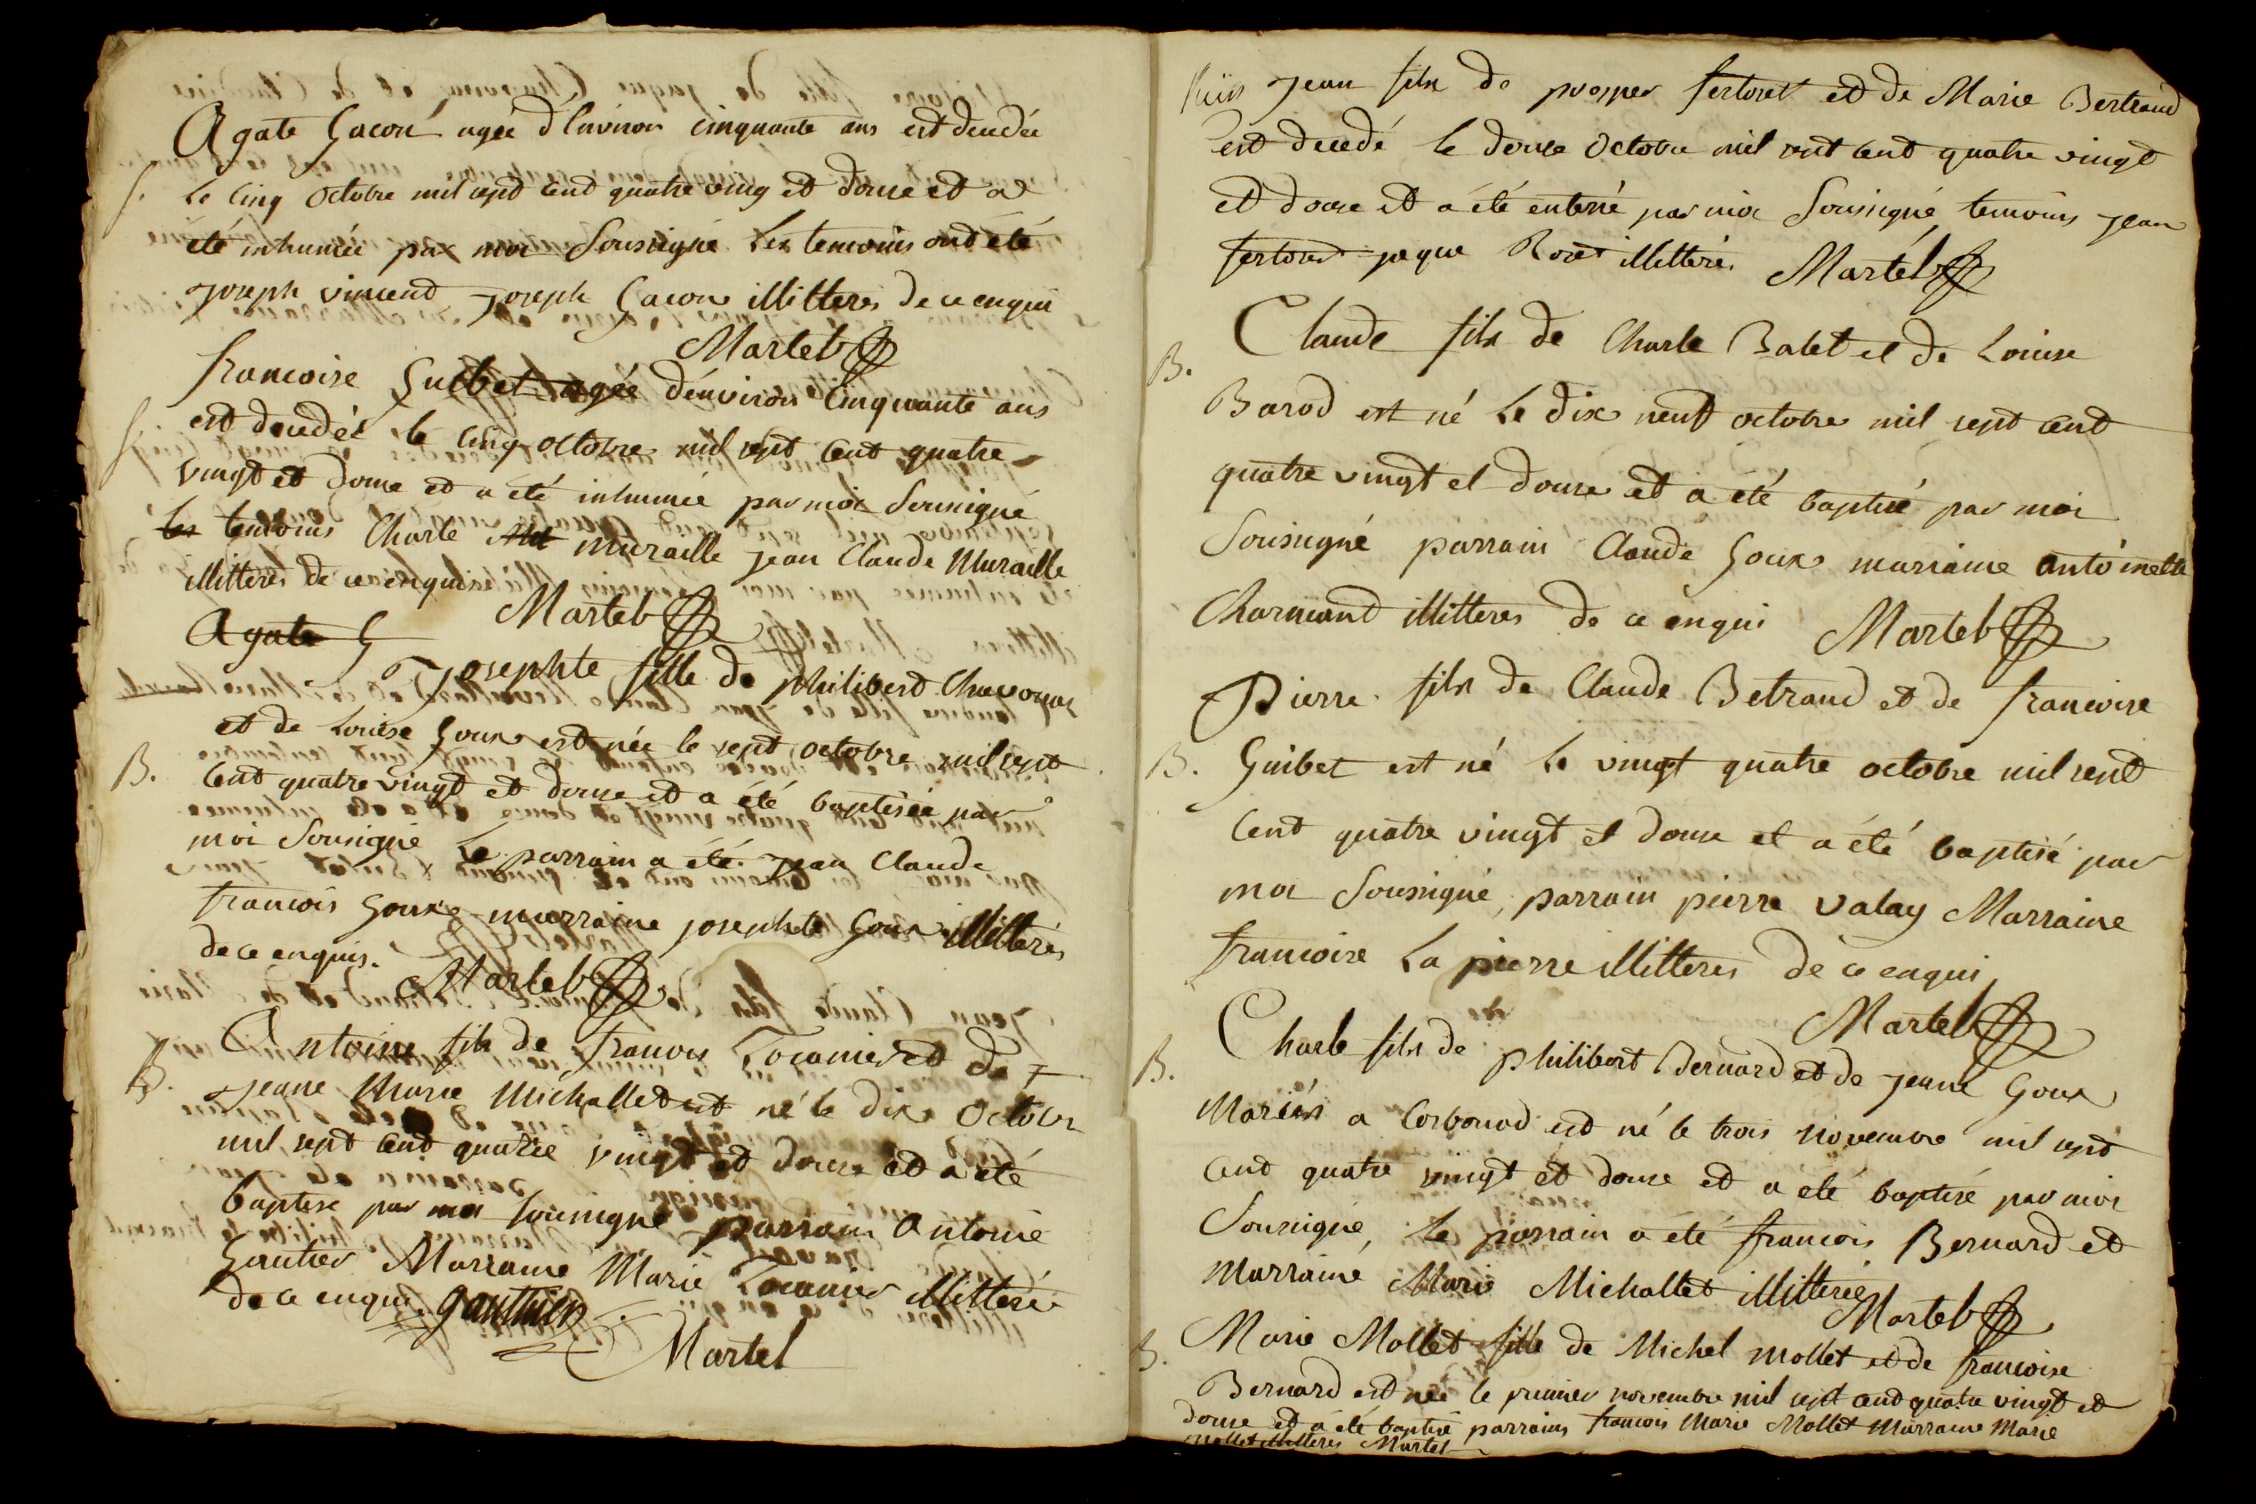 Agate Gacon agée d'Environ cinquante ans est decedée
S. Le cinq Octobre mil sept cent quatre ving et douse et a
été inhumée par moi Soussigné Les temoins ont été
Joseph vincend Joseph Gacon illitteres de ce enquis
Martel
francoise Guibet agée d'environ Cinquante ans
S. est decedée le cinq octobre mil sept cent quatre
vingt et douse et a été inhumée par moi Sousigné
les temoins Charle muraille jean Claude Muraille
illitteres de ce enquis
Martel
Agate G
Josephte fille de philibert
et de Louise Goux est née le sept octobre mil sept
B. cent quatre vingt et douse et a été baptisée par
moi Sousigné Le parrain a été jean Claude
francois Goux marraine josephte Goux illitterés
de ce enquis.
Martel
Antoine fils de francois Tocanier et de
B. jeane Marie Michallet est né le dix Octobr
mil sept cent quatre vingt et douse et a été
baptise par moi sousigné parrain Antoine
Gautier Marraine Marie Tocanier illitteré
de ce enqui. gauthier
Martel
jean fils de prosper fertoret et de Marie Bertrand
est decedé le douse Octobre mil sept cent quatre vingt
et douse et a été enterré par moi Soussigné temoins jean
fertoret jaque Roset illitteres Martel
Claude fils de Charle Balet et de Louise
B.
Barod est né Le dix neuf octobre mil sept cent
quatre vingt et douse et a été baptisé par moi
Sousigné parrain Claude Goux marraine antoinette
Charmand illitteres de ce enqui Martel
Pierre fils de Claude Betrand et de francoise
B. Guibet est né Le vingt quatre octobre mil sept
cent quatre vingt et douse et a été baptisé par
moi Soussigné, parrain pierre valay Marraine
francoise La pierre illitteres de ce enqui
Martel
Charle fils de philibert Bernard et de jeane Goux
B.
Mariés a Corbonod est né le trois novembre mil sept
cent quatre vingt et douse et a été baptisé par moi
Soussigné, Le parrain a été francois Bernard et
marraine Marie Michallet illitterés
Martel
Marie Mollet fille de Michel mollet et de francoise
B.
Bernard est née le premier novembre mil sept cent quatre vingt et
douse et a été baptisé parrains francois Marie Mollet Marraine Marie
mollet illitteres Martel